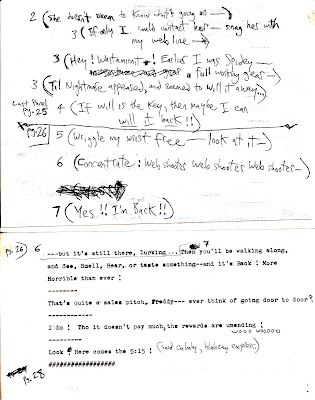 2 (She doesn't seem to know what's going on—)
3 (If only I could contact her — snag her with
my web line —)
3 (Hey! Waitaminnit! Earlier I was Spidey —
a full working gear—
3 (Til Nightmare appeared, and seemed to will it away...
Last Panel
pg. 25
4 (If will is the key, then maybe I can
will it back!!)
pg. 26
5 (Wriggle my wrist free — look at it—)
6 (Concentrate! Web shooters web shooters web shooters—)
7 (Yes!! I'm Back!!)
pg. 26) 6 ---but it's still there, lurking... Then you'll be walking along,
7
and See, Smell, Hear, or taste something--and it's Back! More
Horrible than ever!
--------
That's quite a sales pitch, Freddy--- ever think of going door to door?
-----------
I do! Tho it doesn't pay much,the rewards are unending!
--------
WOOO WOOOOO
Look! Here comes the 5:15! (said calmly, blahzay express.)
##################
Pg. 28